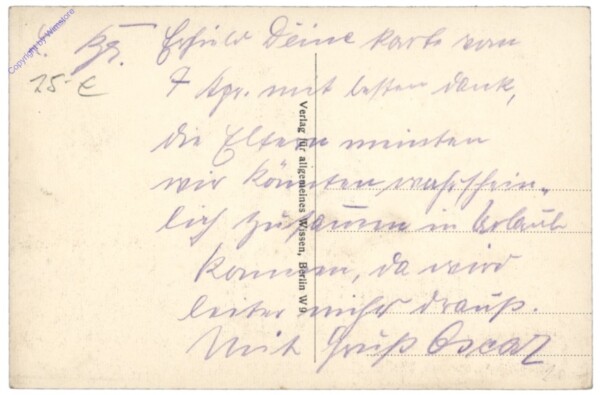 Copyright by Wienstore
L. Kg. Erhielt Deine Karte vom
25.- €
7 Apr. mit besten Dank,
die Eltern meinten
wir könnten wahrschein-
lich zusamm in Urlaub
kommen, da wird
leider nichts drauß.
Mit Gruß Oscar
Verlag für allgemeines Wissen, Berlin W 9